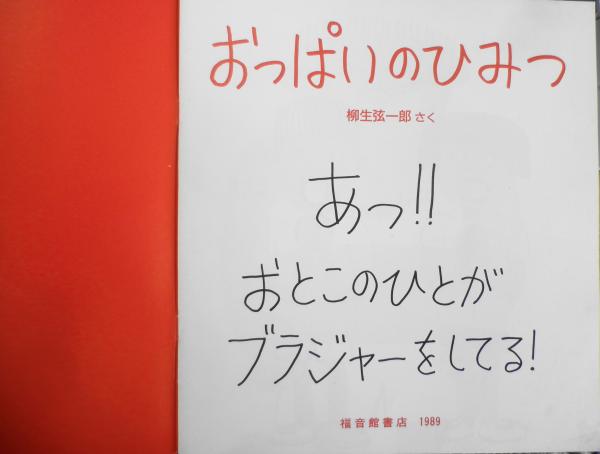 おっぱいのひみつ
柳生弦一郎 さく
あっ!!
おとこのひとが
ブラジャーをしてる!
福音館書店 1989